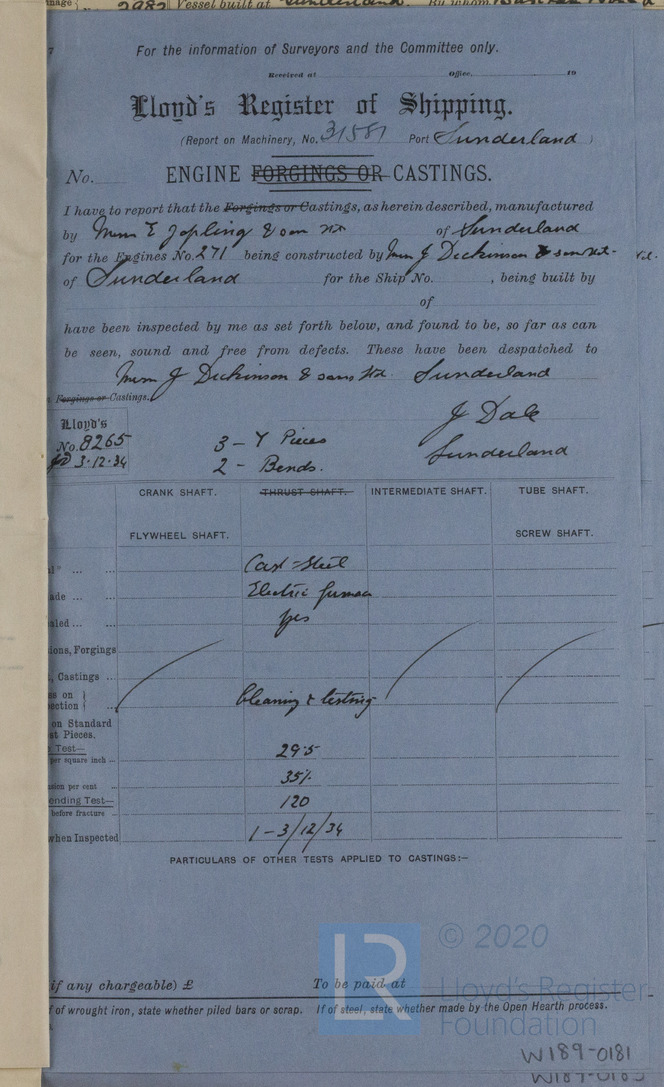 2982 Vessel built at Sunderland By whom
For the information of Surveyors and the Committee only.
Received at Office, 19
Lloyd's Register of Shipping.
(Report on Machinery, No. 31581 Port Sunderland)
No. ENGINE FORGINGS OR CASTINGS.
I have to report that the Forgings or Castings, as herein described, manufactured
by Messrs E Jopling & Son Ltd of Sunderland
for the Engines No. 271 being constructed by Messrs J Dickinson & Sons Ltd.
of Sunderland for the Ship No. , being built by
of
have been inspected by me as set forth below, and found to be, so far as can
be seen, sound and free from defects. These have been despatched to
Messrs J Dickinson & Sons Ltd. Sunderland
Forgings or Castings.
J Dale
Sunderland
Lloyd's
No. 8265
JD 3.12.34
3 - Y Pieces
2 - Bends.
CRANK SHAFT. THRUST SHAFT. INTERMEDIATE SHAFT. TUBE SHAFT.
FLYWHEEL SHAFT. SCREW SHAFT.
Cast Steel
ade ... Electric furnace
aled ... Yes
ions, Forgings
, Castings ...
ss on
ection Cleaning & testing
on Standard
st Pieces.
Test—
per square inch ... 29.5
sion per cent ... 35%
ending Test—
before fracture ... 120
when Inspected 1-3/12/34
PARTICULARS OF OTHER TESTS APPLIED TO CASTINGS:—
© 2020
LR
Lloyd's Register
Foundation
if any chargeable) £ To be paid at
f of wrought iron, state whether piled bars or scrap. If of steel, state whether made by the Open Hearth process.
W189-0181